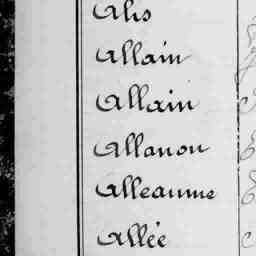 Alis
Allain
Allain
Allanou
Alleaume
Allée